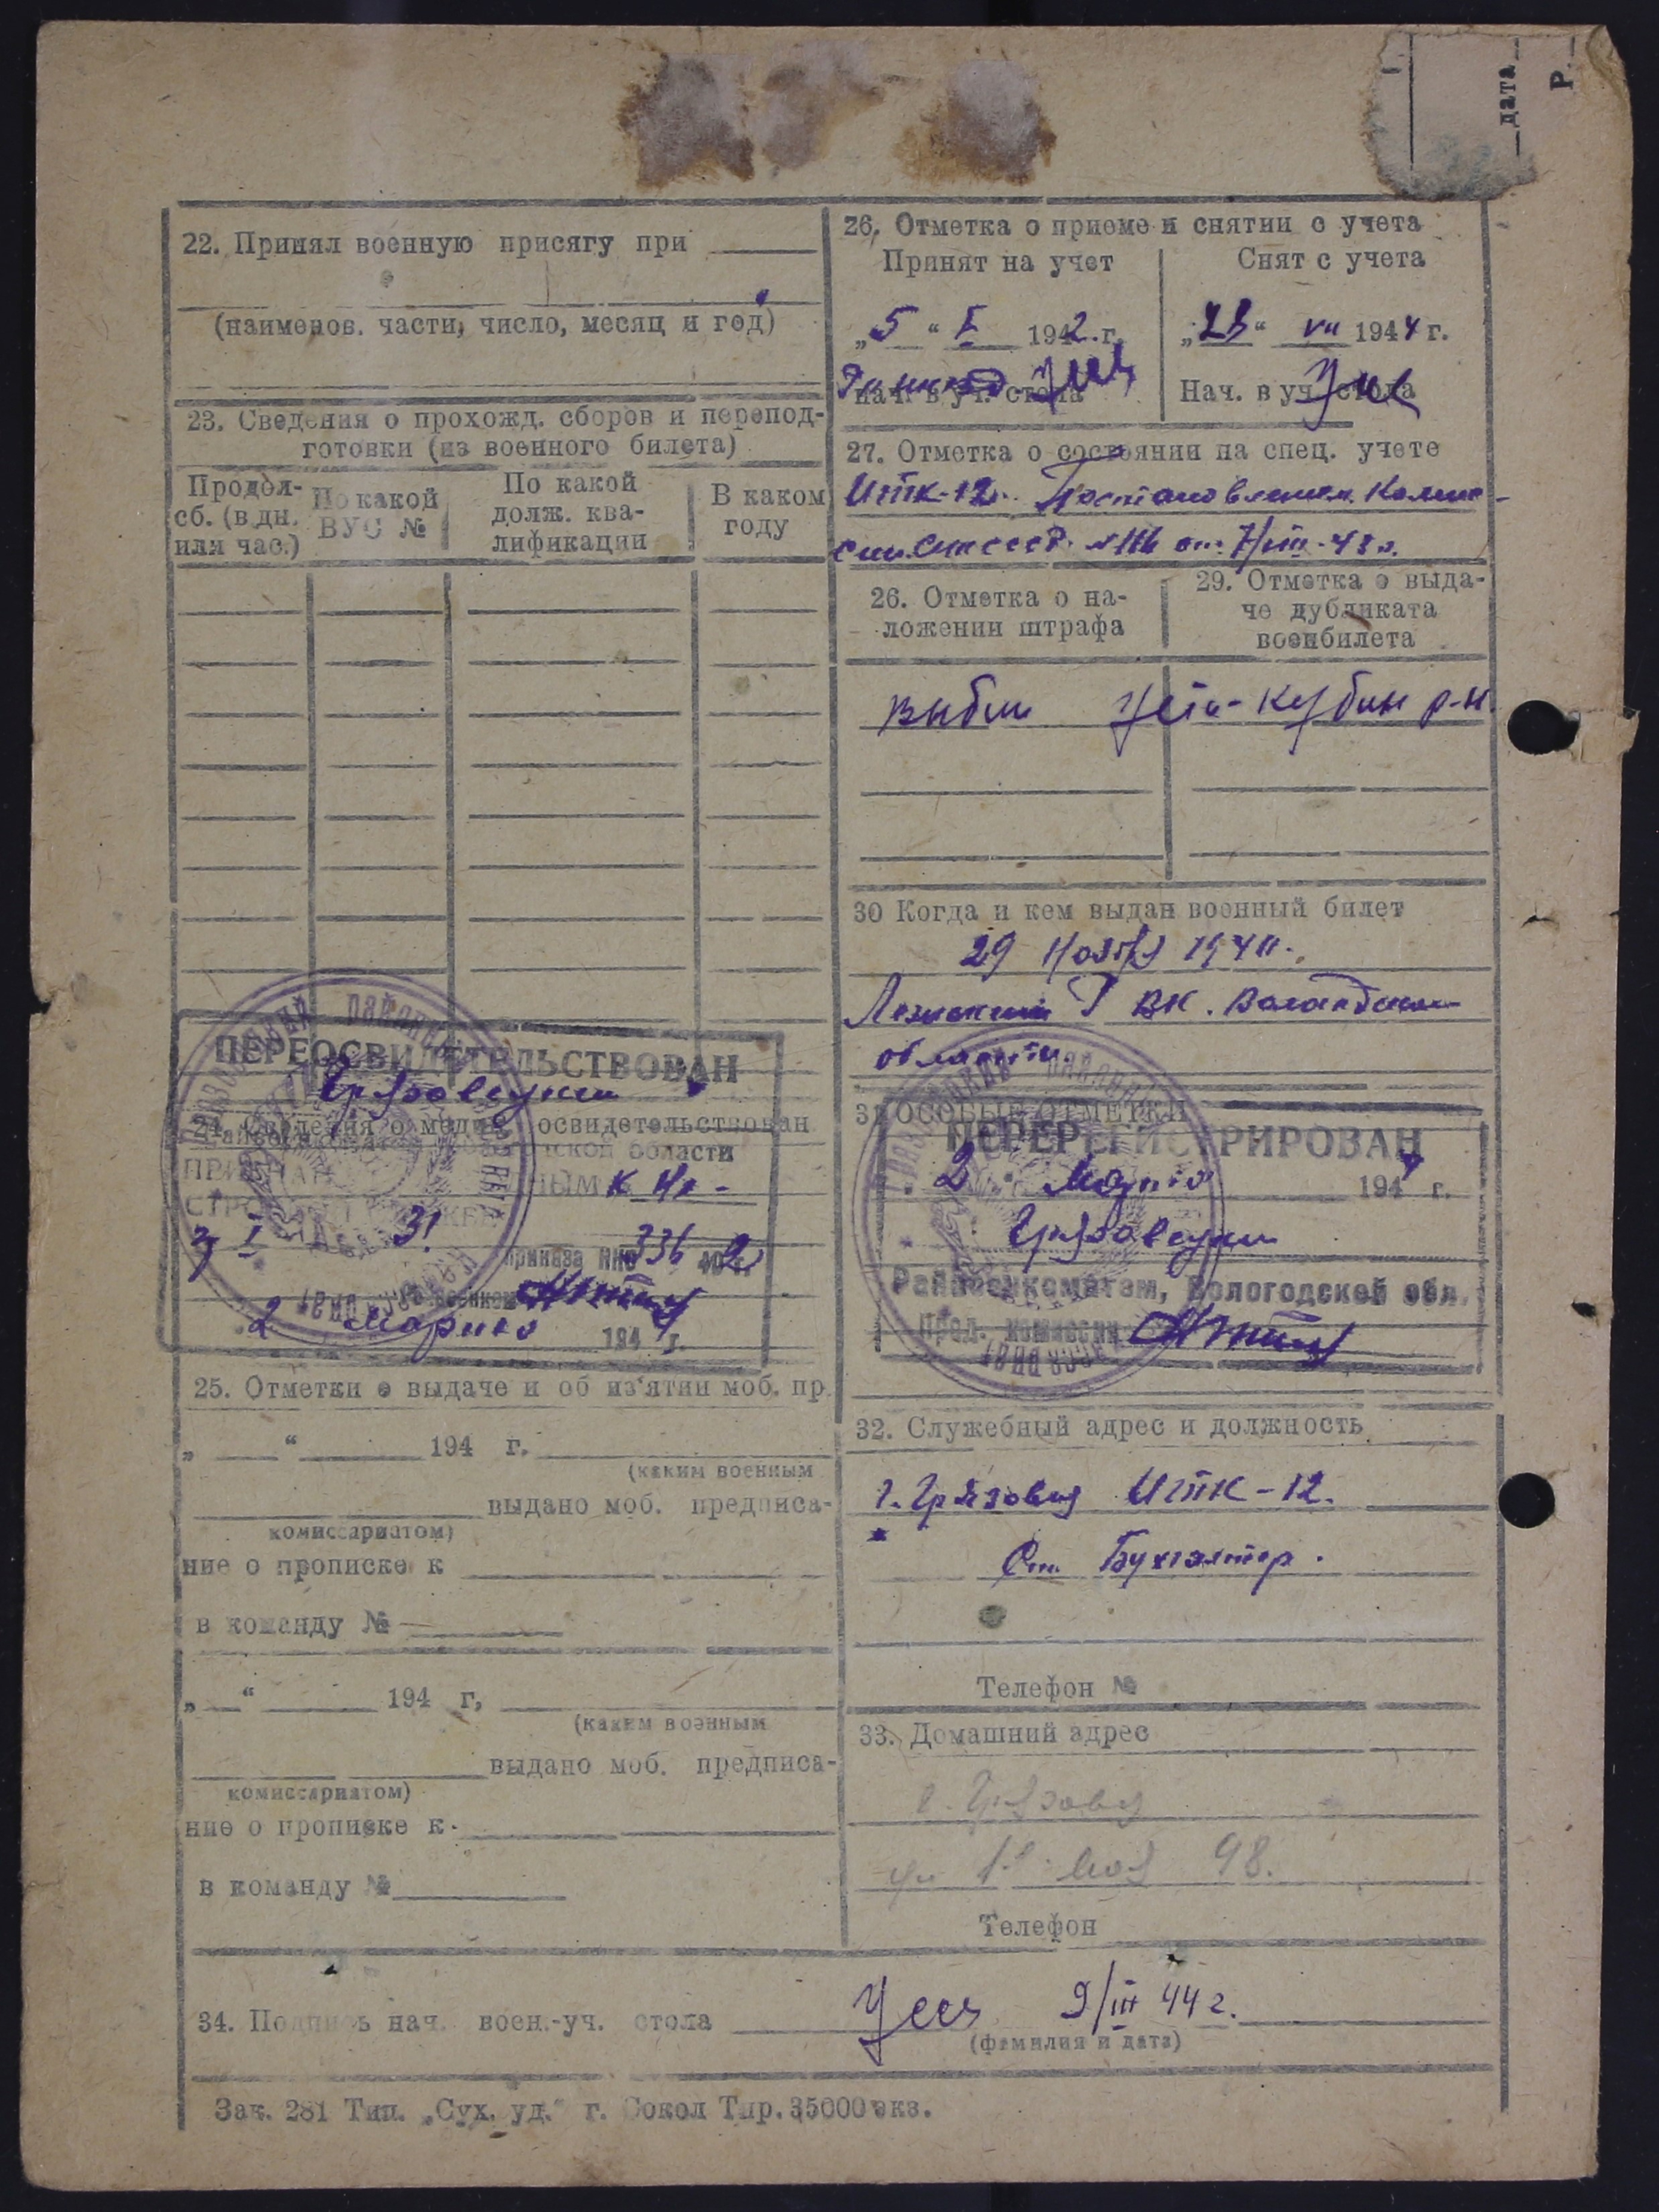 дата
Р.
22. Принял военную присягу при
(наименов. части, число, месяц и год)
23. Сведения о прохожд. сборов и перепод-
готовки (из военного билета)
Продол-
сб. (в дн.
или час.)
По какой
ВУС №
По какой
долж. ква-
лификации
В каком
году
ПЕРЕОСВИДЕТЕЛЬСТВОВАН
Грязовецким
освидетельствован
области
К
3 I 31
приказа НКО 336 42
2 марта 194 г.
25. Отметки о выдаче и об из'ятии моб. пр
„ “ 194 г.
(каким военным
выдано моб. предписа-
комиссариатом)
ние о прописке к
в команду №
„ “ 194 г,
(каким военным
выдано моб. предписа-
комиссариатом)
ние о прописке к
в команду №
26. Отметка о приеме и снятии с учета
Принят на учет
Снят с учета
„5“ I 1942 г.
„23“ VII 1944 г.
Нач. в уч. стола
Нач. в уч. стола
27. Отметка о состоянии на спец. учете
ИТК-12. Постановлением Комис-
сии. № от 7/III-43 г.
26. Отметка о на-
ложении штрафа
29. Отметка о выда-
че дубликата
военбилета
выбыл Усть-Кубин р-н.
30 Когда и кем выдан военный билет
29 Ноября 1940.
РВК. Вологодской
области
31 ОСОБЫЕ ОТМЕТКИ
ПЕРЕРЕГИСТРИРОВАН
2 Марта 194 г.
Грязовецким
Райвоенкоматом, Вологодской обл.
Пред. комиссии
32. Служебный адрес и должность
г. Грязовец ИТК-12.
Ст. Бухгалтер.
Телефон №
33. Домашний адрес
г. Грязовец
ул 1е мая 98.
Телефон
34. Подпись нач. воен.-уч. стола 9/III 44 г.
(фамилия и дата)
Зак. 281 Тип. „Сух. уд.“ г. Сокол Тир. 35000 экз.